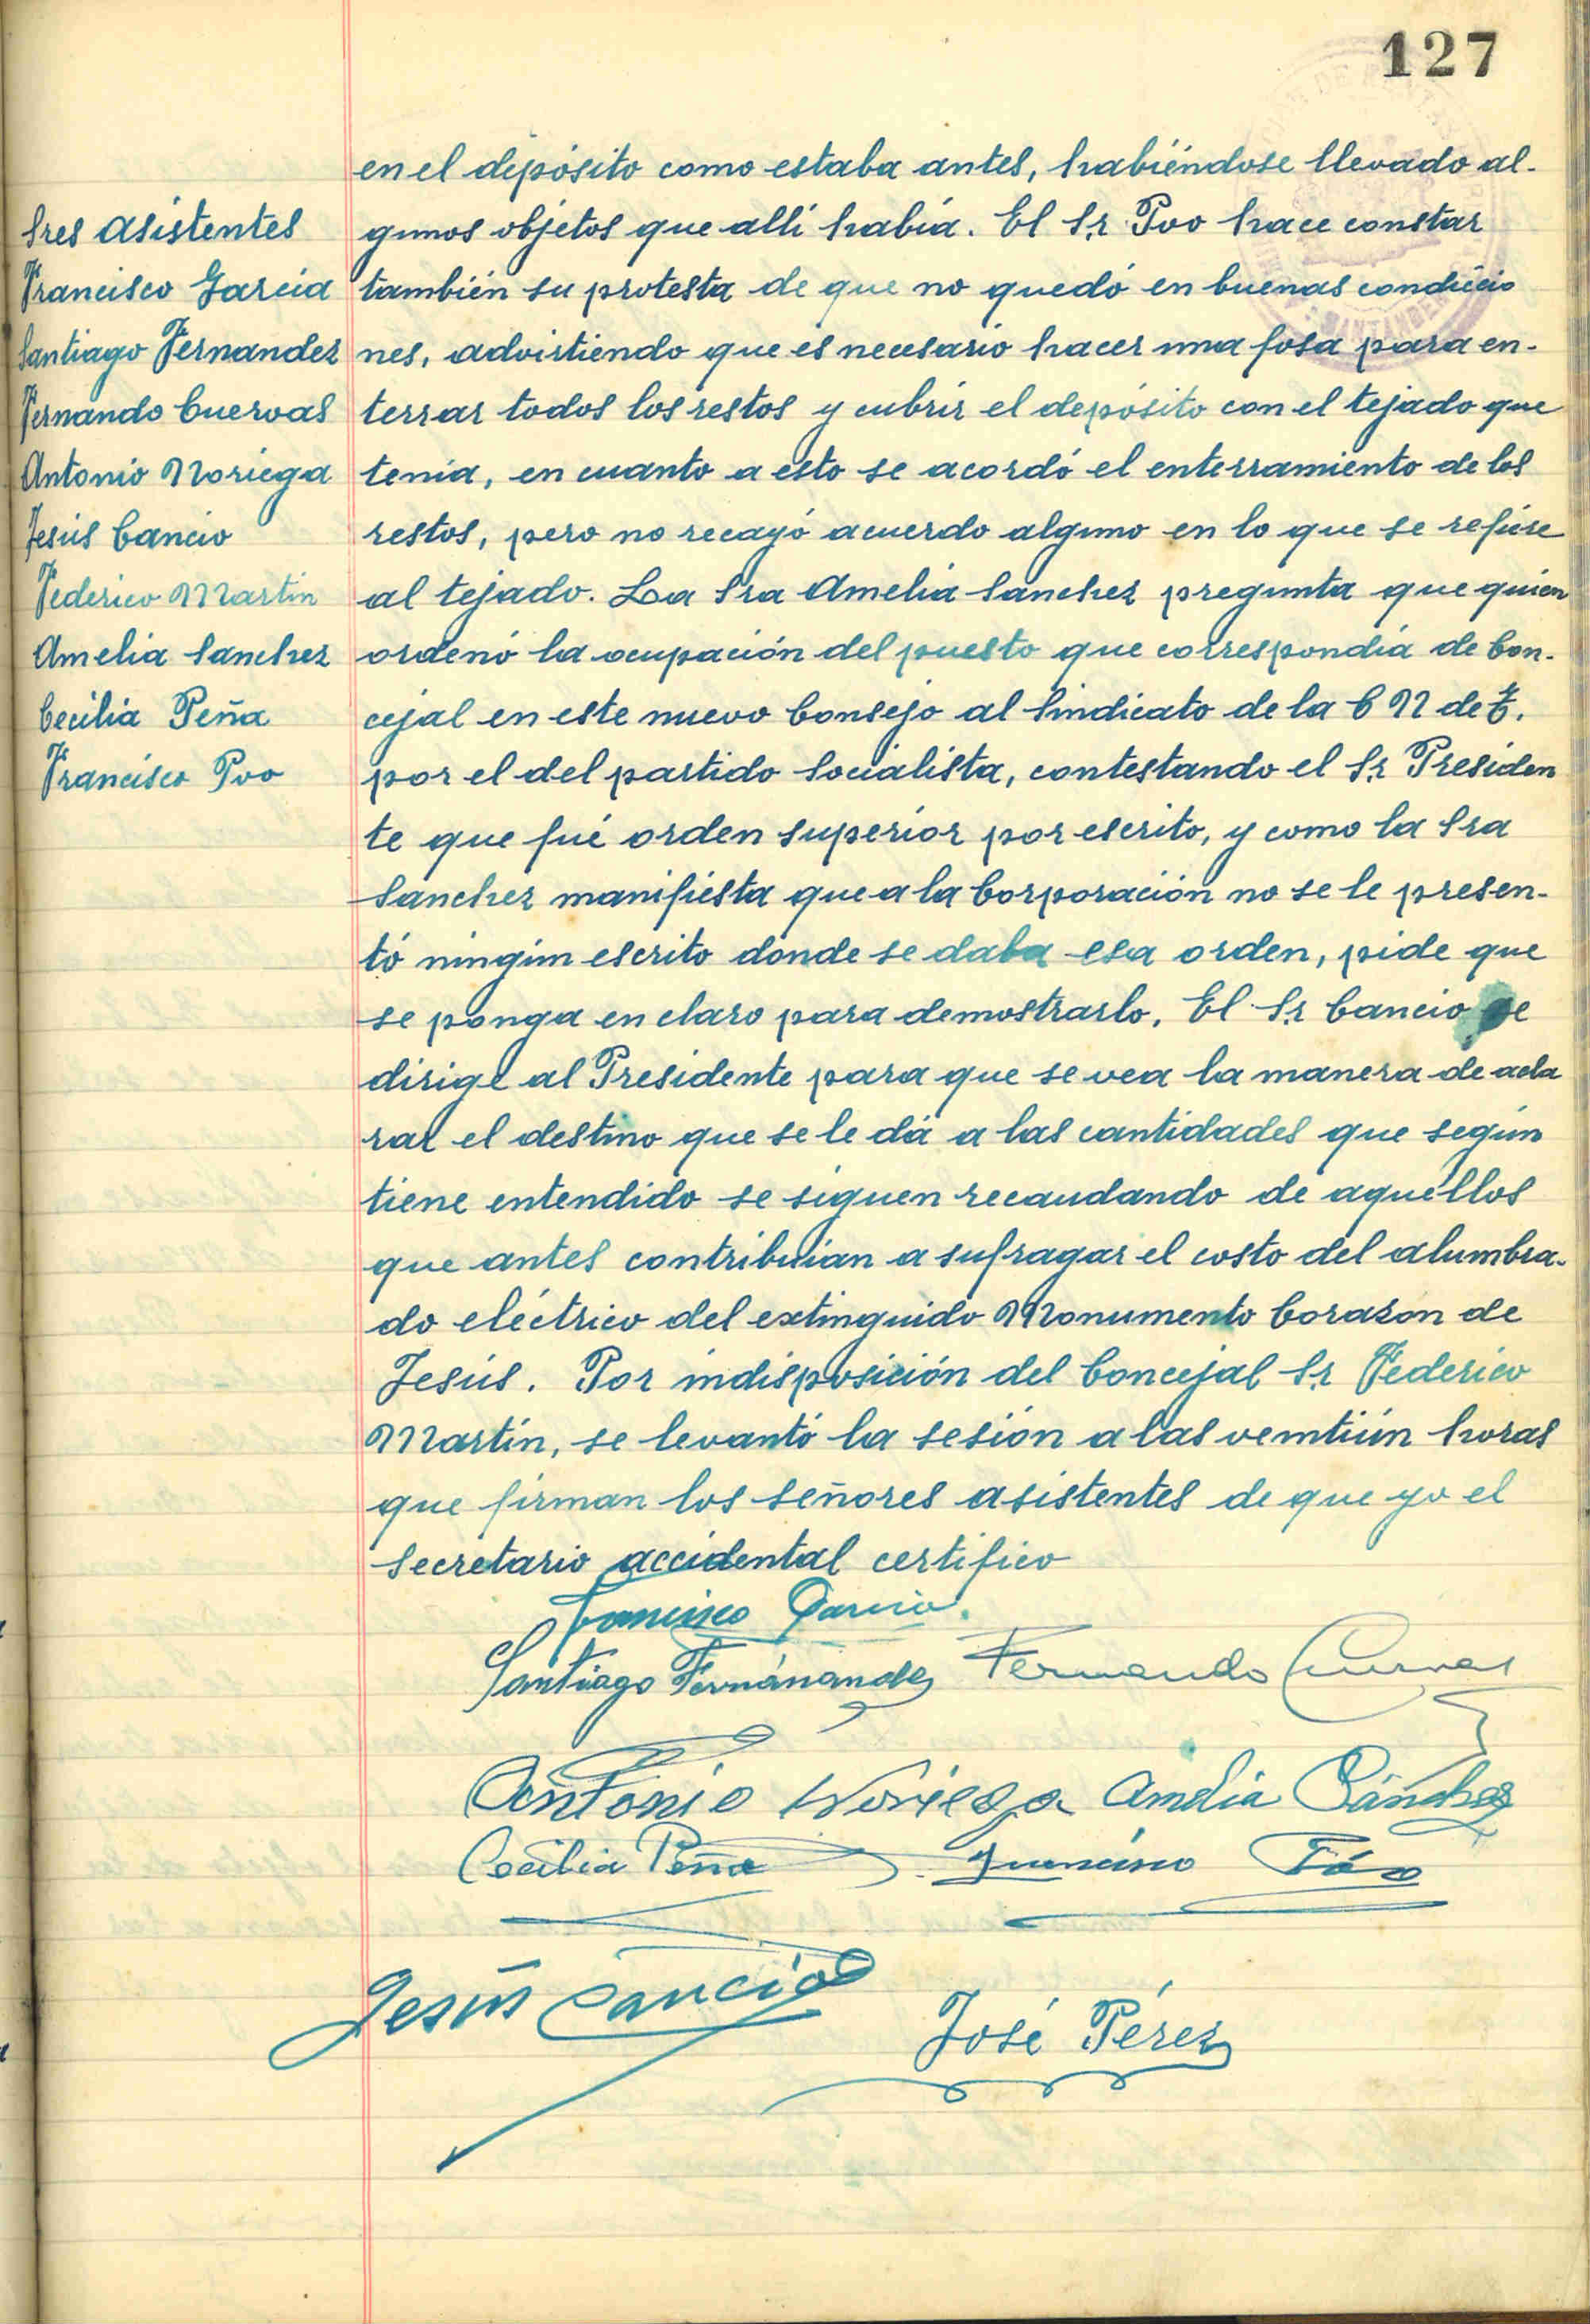 127
Sres asistentes
Francisco Garcia
Santiago Fernandez
Fernando Cuervas
Antonio Noriega
Jesús Cancio
Federico Martin
Amelia Sanchez
Cecilia Peña
Francisco Poo
en el depósito como estaba antes, habiéndose llevado al-
gunos objetos que alli habia. El Sr. Poo hace constar
también su protesta de que no quedó en buenas condicio
nes, advirtiendo que es necesario hacer una fosa para en-
terrar todos los restos y cubrir el depósito con el tejado que
tenia, en cuanto a esto se acordó el enterramiento de los
restos, pero no recayó acuerdo alguno en lo que se refiere
al tejado. La Sra Amelia Sanchez pregunta que quien
ordenó la ocupación del puesto que correspondia de Con-
cejal en este nuevo Consejo al Sindicato de la C N de T.
por el del partido Socialista, contestando el Sr Presiden
te que fué orden superior por escrito, y como la Sra
Sanchez manifiesta que a la Corporación no se le presen-
tó ningún escrito donde se daba esa orden, pide que
se ponga en claro para demostrarlo. El Sr Cancio se
dirige al Presidente para que se vea la manera de acla
rar el destino que se le dá a las cantidades que según
tiene entendido se siguen recaudando de aquéllos
que antes contribuian a sufragar el costo del alumbra-
do eléctrico del extinguido Monumento Corazón de
Jesús. Por indisposición del Concejal Sr Federico
Martín, se levantó la sesión a las veintiún horas
que firman los señores asistentes de que yo el
Secretario accidental certifico
Francisco Garcia.
Santiago Fernánandez Fernando Cuervas
Antonio Noriega Amelia Sánchez
Cecilia Peña Francisco Póo
Jesús Cancio
José Pérez